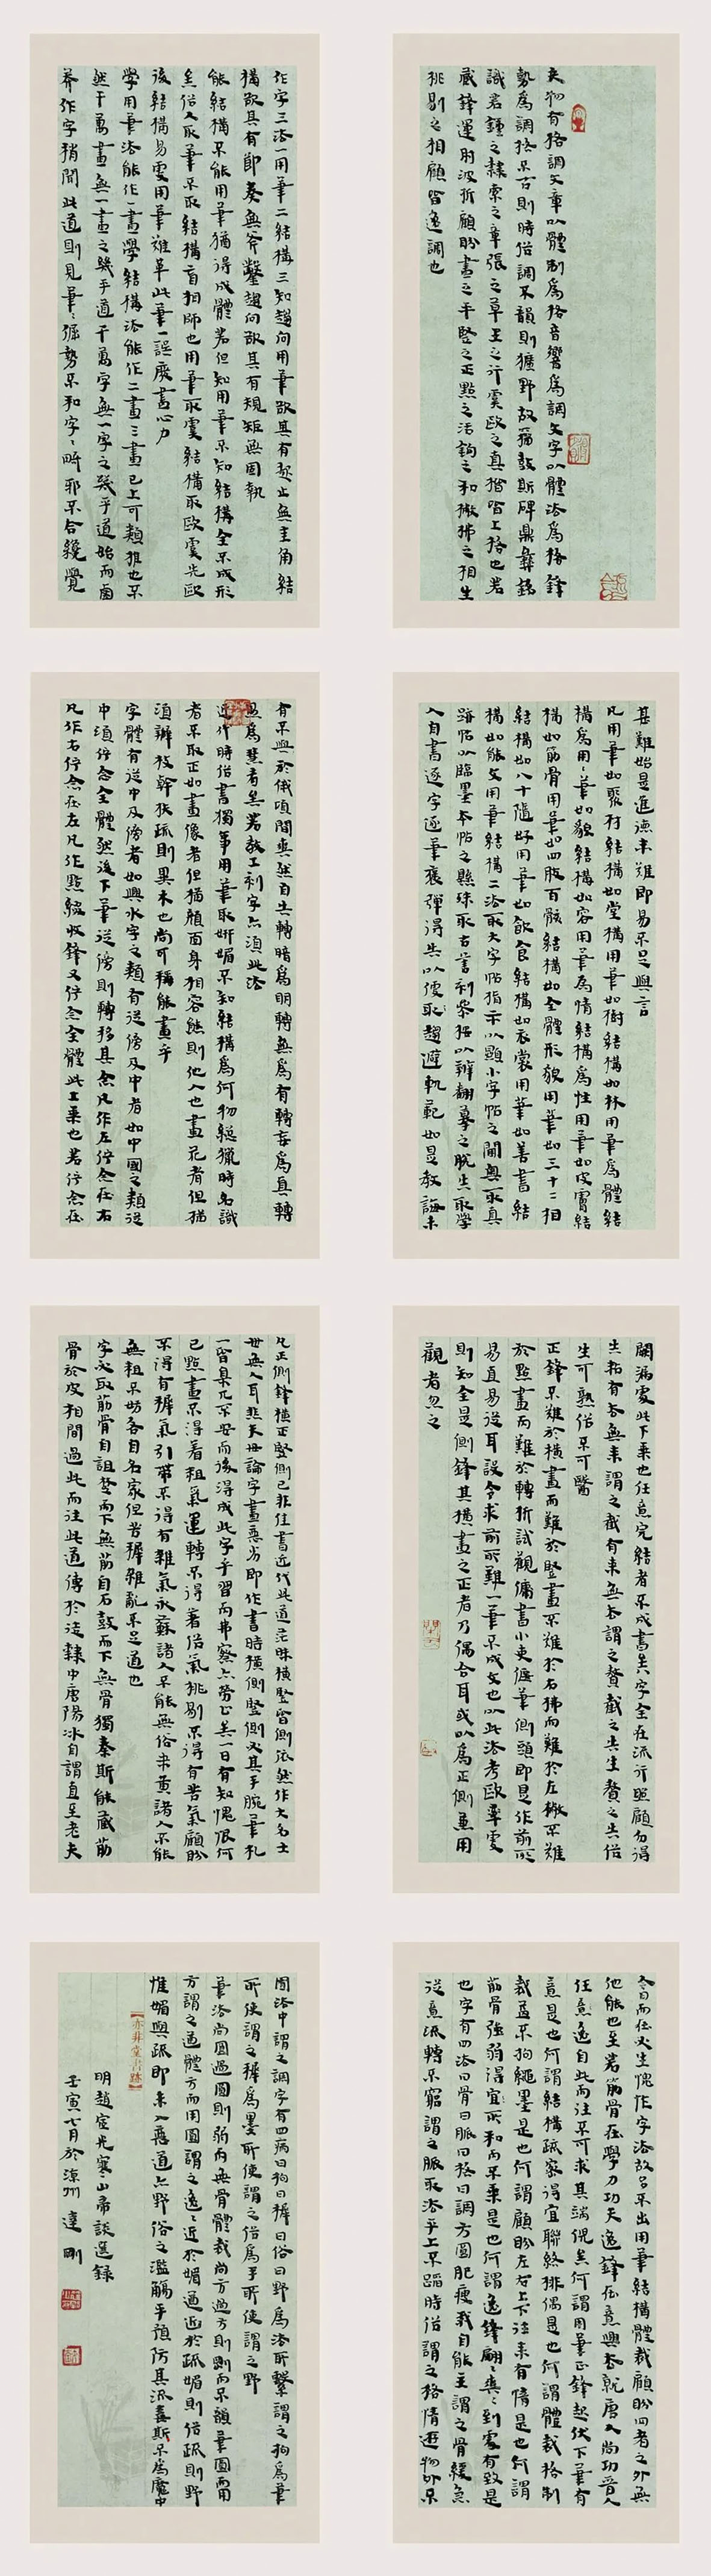 夫物有格調文章以體制為格音響為調文字以體法為格鋒
勢為調格不古則時俗調不韻則獷野故籀鼓斯碑鼎彝銘
識若鍾之隸索之章張之草王之行虞歐之真楷皆上格也若
藏鋒運肘波折顧盼畫之平豎之正點之活鉤之和撇拂之相生
挑剔之相顧皆逸調也
作字三法一用筆二結構三知趨向用筆欲其有起止無圭角結
構欲其有節奏無斧鑿趨向欲其有規矩無固執
能結構不能用筆猶得成體若但知用筆不知結構全不成形
矣俗人取筆不取結構盲相師也用筆取虞結構取歐虞先歐
後結構易更用筆難革此筆一誤廢盡心力
學用筆法能作一畫學結構法能作二畫三畫已上可類推也不
然千萬畫無一畫之幾乎道千萬字無一字之幾乎道始而鹵
莽作字稍閒此道則見筆〻倔勢不和字〻畸邪不合纔覺
甚難始是進德未難即易不足與言
凡用筆如聚材結構如堂構用筆如樹結構如林用筆為體結
構為用〻筆如貌結構如容用筆為情結構為性用筆如皮膚結
構如筋骨用筆如四肢百骸結構如全體形貌用筆如三十二相
結構如八十隨好用筆如飲食結構如衣裳用筆如善書結
構如能文用筆結構二法取大字帖指示以顯小字帖之閫奧取真
跡帖以臨墨本帖之懸殊取古善刻參極以辨翻摹之脫失取學
人自書逐字逐筆褒彈得失以便取趨避軌範如是教誨未
有不興於俄頃間奐然自失轉暗為明轉無為有轉妄為真轉
愚為慧者矣若教工刻字亦須此法
近代時俗書獨事用筆取妍媚不知結構為何物總獵時名識
者不取正如畫像者但描顏面身相容態則他人也畫花者但描
須辦枝幹扶疏則異木也尚可稱能畫乎
字體有從中及傍者如興水字之類有從傍及中者如中國之類從
中須佇念全體然後下筆從傍則轉移其念凡作左佇念在右
凡作右佇念在左凡作點綴收鋒又佇念全體此上乘也若佇念在
闕漏處此下乘也任意完結者不成書矣字全在流行照顧勿得
失粘有去無來謂之截有來無去謂之贅截之失生贅之失俗
生可熟俗不可醫
正鋒不難於橫畫而難於豎畫不難於右拂而難於左撇不難
於點畫而難於轉折試觀傭書小吏偃筆側頭即是作前所
易直易從耳設令求前所難一筆不成文也以此法考歐率更
則知全是側鋒其橫畫之正者乃偶合耳或以為正側兼用
觀者忽之
凡正側鋒橫正豎側已非佳書近代此道茫昧橫豎皆側依然作大名士
世無人耳悲夫世論字畫惡劣即作書時橫側豎側及其手腕筆札
一皆臬兀不安而後得成此字乎習而弗察亦勞已矣一日有知愧恨何
已點畫不得著粗氣運轉不得著俗氣挑剔不得有苦氣顧盼
不得有穉氣引帶不得有雜氣永蘇諸人不能無俗米黃諸人不能
無粗不妨各自名家但苦穉雜亂不足道也
字必取筋骨自詛楚而下無筋自石鼓而下無骨獨秦斯能藏筋
骨於皮相間過此而往此道傳於徒隸中唐陽冰自謂直至老夫
今日而任必生愧作字法故名不出用筆結構體裁顧盼四者之外無
他能也至若筋骨在學力功夫逸鋒在意興杳就唐人尚功晉人
任意逸自此而往不可求其端倪矣何謂用筆正鋒起伏下筆有
意是也何謂結構疏密得宜聯絡排偶是也何謂體裁格制
裁不拘繩墨是也何謂顧盼左右上下往來有情是也何謂
筋骨強弱得宜和而不乘是也何謂逸鋒翩〻奕〻到處有致是
也字有四法曰骨曰脈曰格曰調方圓肥瘦我自能主謂之骨緩急
從意流轉不窮謂之脈取法乎上不蹈時俗謂之格情遊物外不
囿法中謂之調字有四病曰拘曰穉曰俗曰野為法所繫謂之拘為筆
所使謂之穉為墨所使謂之俗為手所使謂之野
筆法尚圓過圓則弱而無骨體裁尚方過方則剛而不韻筆圓而用
方謂之遒體方而用圓謂之逸〻近於媚遒近於疏媚則俗疏則野
惟媚與疏即未入惡道亦野俗之濫觴乎預防其流毒斯不為魔中
【亦井堂書跡】
明趙宦光寒山帚談選錄
壬寅七月於涼州達剛